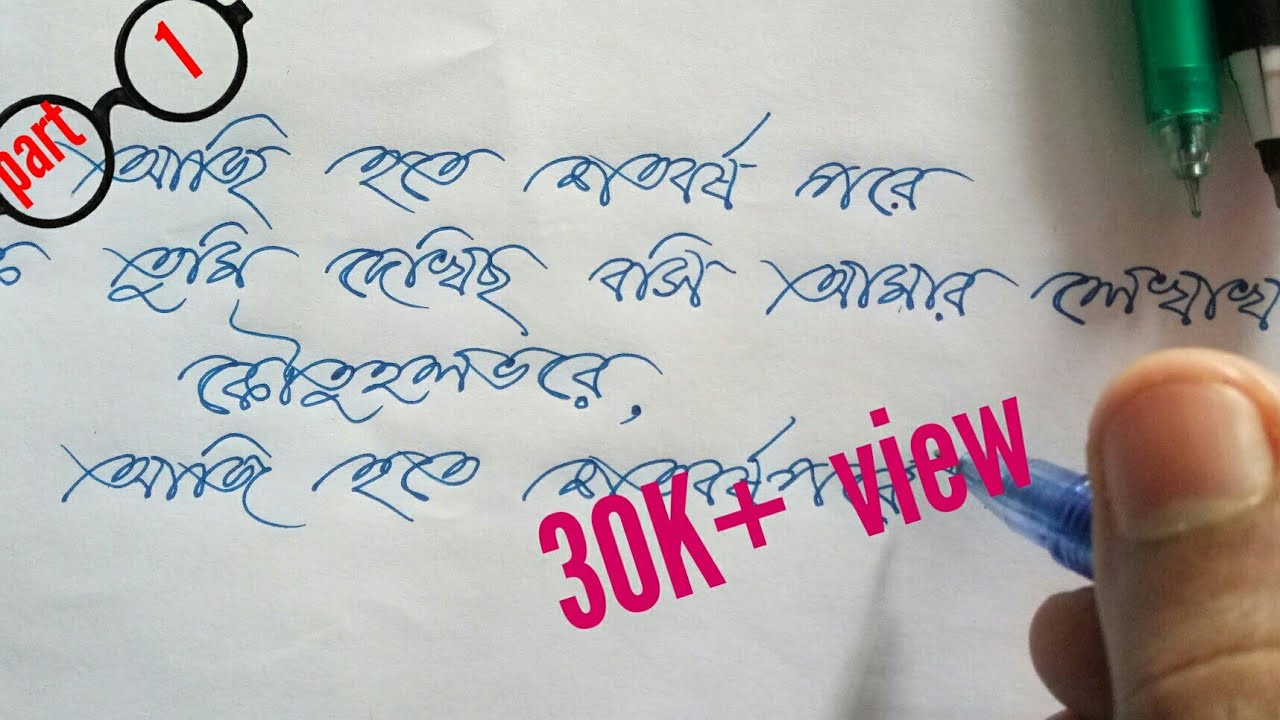 part 1
আজি হতে শতবর্ষ পরে
তুমি দেখিছ বসি আমার লেখাখ
কৌতুহলভরে,
আজি হতে শতবর্ষপরে
30K+ view